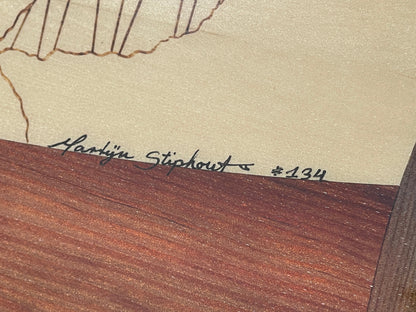 Martijn Stiphout #134